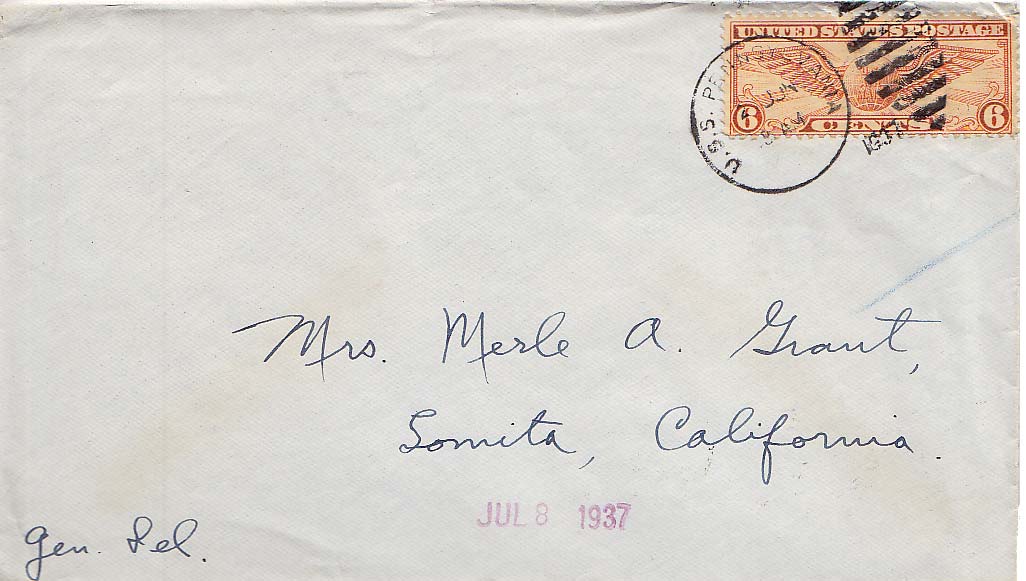 UNITED STATES POSTAGE
6 CENTS 6
U.S.S. PENNSYLVANIA
JUN
AM
1937
Mrs. Merle A. Grant,
Lomita, California.
JUL 8 1937
Gen. Del.